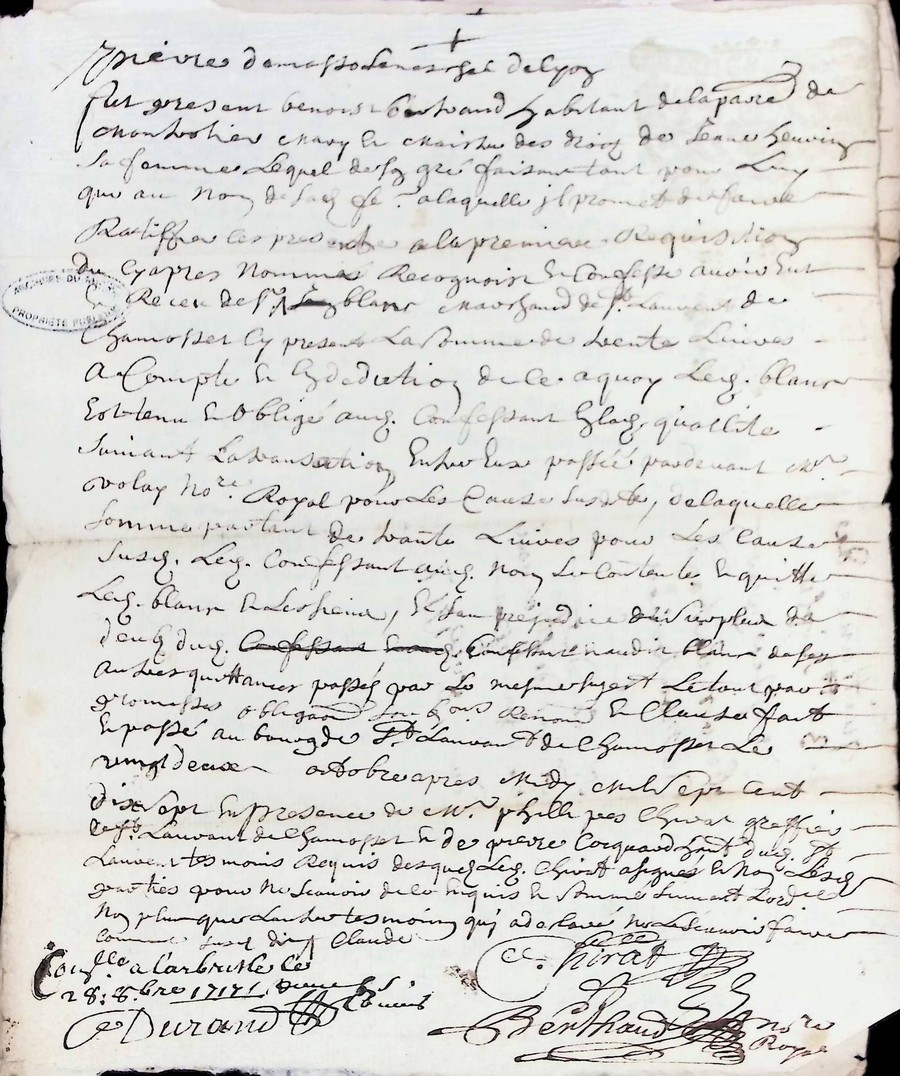 fut present benoist bertrand habitant de la parr.e de
mary et maistre des droictz de Jeanne
Sa femme Lequel de son gré faisant tant pour Luy
que au Nom de sad. fe. a laquelle il promet de faire
Ratiffier ces presentes a la premiere Requisition
du Cyapres Nommé Recognoist et Confesse avoir Eut
et Receu de Sr. blanc Marchand de St. Laurent de
Chamosset Cy present La somme de trente Livres
A Compte et En deduction de ce aquoy Led. blanc
Est tenu et Obligé aud. Confessant Esd. quallité
Suivant La transaction Entre Eux passée pardevant Mr.
Nore. Royal pour Les Cause Susd. de laquelle
Somme partant de trante Livres pour Les Cause
Susd. Led. Confessant aud. Nom Se Contente et quitte
Led. blanc et Les siens, Et sans prejudice du surplus de
deub dud. Confessant et aud. blanc de ses
Autres quittances passés par Le mesme sujest Le tout par
promesses obligaon. Renon. et Clauses fait
et passé au bourg de St. Laurant de Chamosset Le
vingt deux octobre apres Midy Mil sept cent
dix sept En presence de Mr. phillippes Chirat greffier
de St. Laurant de Chamosset et de pierre dud. St.
Laurent tesmoins Requis desquels Led. Chirat a signé et Non Lesd.
parties pour Ne Scavoir de ce Enquis et Sommé Suivant Lord.ce
Non plus que Lautre tesmoing qui a declaré Ne Le scavoir faire
Conllé a larbresle le
28: 8.bre 1717
Durand
Chirat
Berthaud nore
Royal
ARCHIVES DU RHÔNE
PROPRIÉTÉ PUBLIQUE